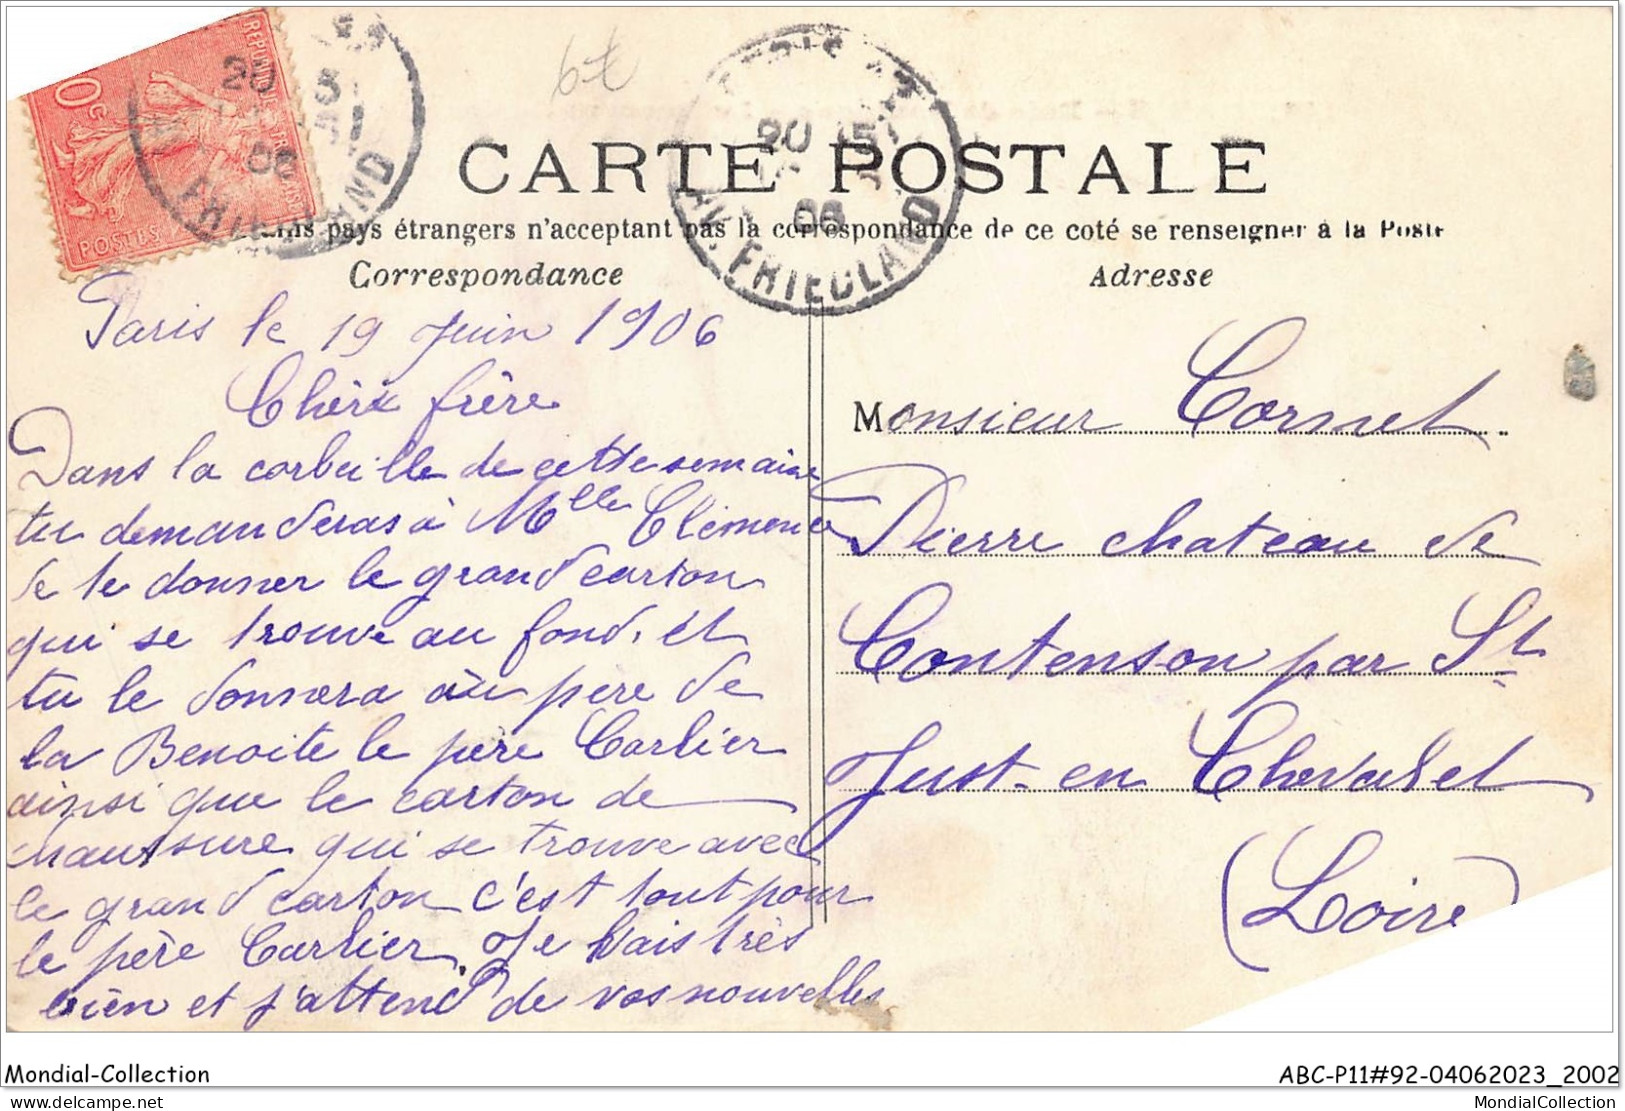 RÉPUBLIQUE FRANÇAISE
10c
POSTES
20
06
FRIEDLAND
6t
PARIS
20
06
AV. FRIEDLAND
CARTE POSTALE
pays étrangers n'acceptant pas la correspondance de ce coté se renseigner à la Poste
Correspondance
Adresse
Paris le 19 Juin 1906
Chère frère
Dans la corbeille de cette semaine
tu demanderas à Mlle Clémence
de te donner le grand carton
qui se trouve au fond, et
tu le donnera au père de
la Benoite le père Carlier
ainsi que le carton de
chaussure qui se trouve avec
le grand carton c'est tout pour
le père Carlier. Je vais très
bien et j'attend de vos nouvelles
Monsieur Cornet
Pierre chateau de
Contenson par St
Just-en Chevalet
(Loire)
Mondial-Collection
ABC-P11#92-04062023_2002
delcampe.net
MondialCollection